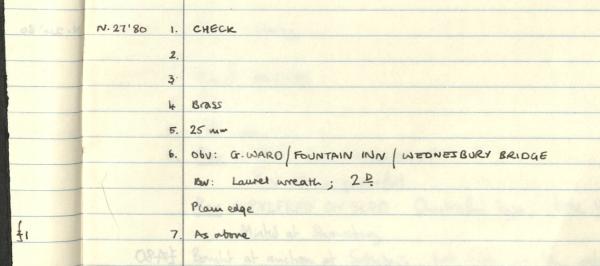 N.27'80 1. CHECK
2.
3
4 Brass
5. 25 mm
6. Obv: G.WARD/FOUNTAIN INN/WEDNESBURY BRIDGE
Rev: Laurel wreath; 2D.
Plain edge
£1 7. As above